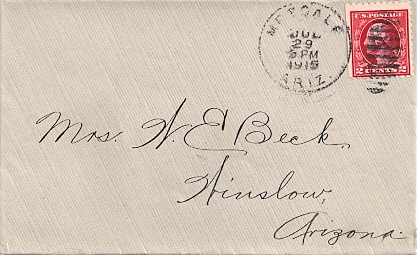 JUL
29
PM
1915
ARIZ.
U.S. POSTAGE
2 CENTS 2
Mrs. W. E. Beck.
Winslow,
Arizona.